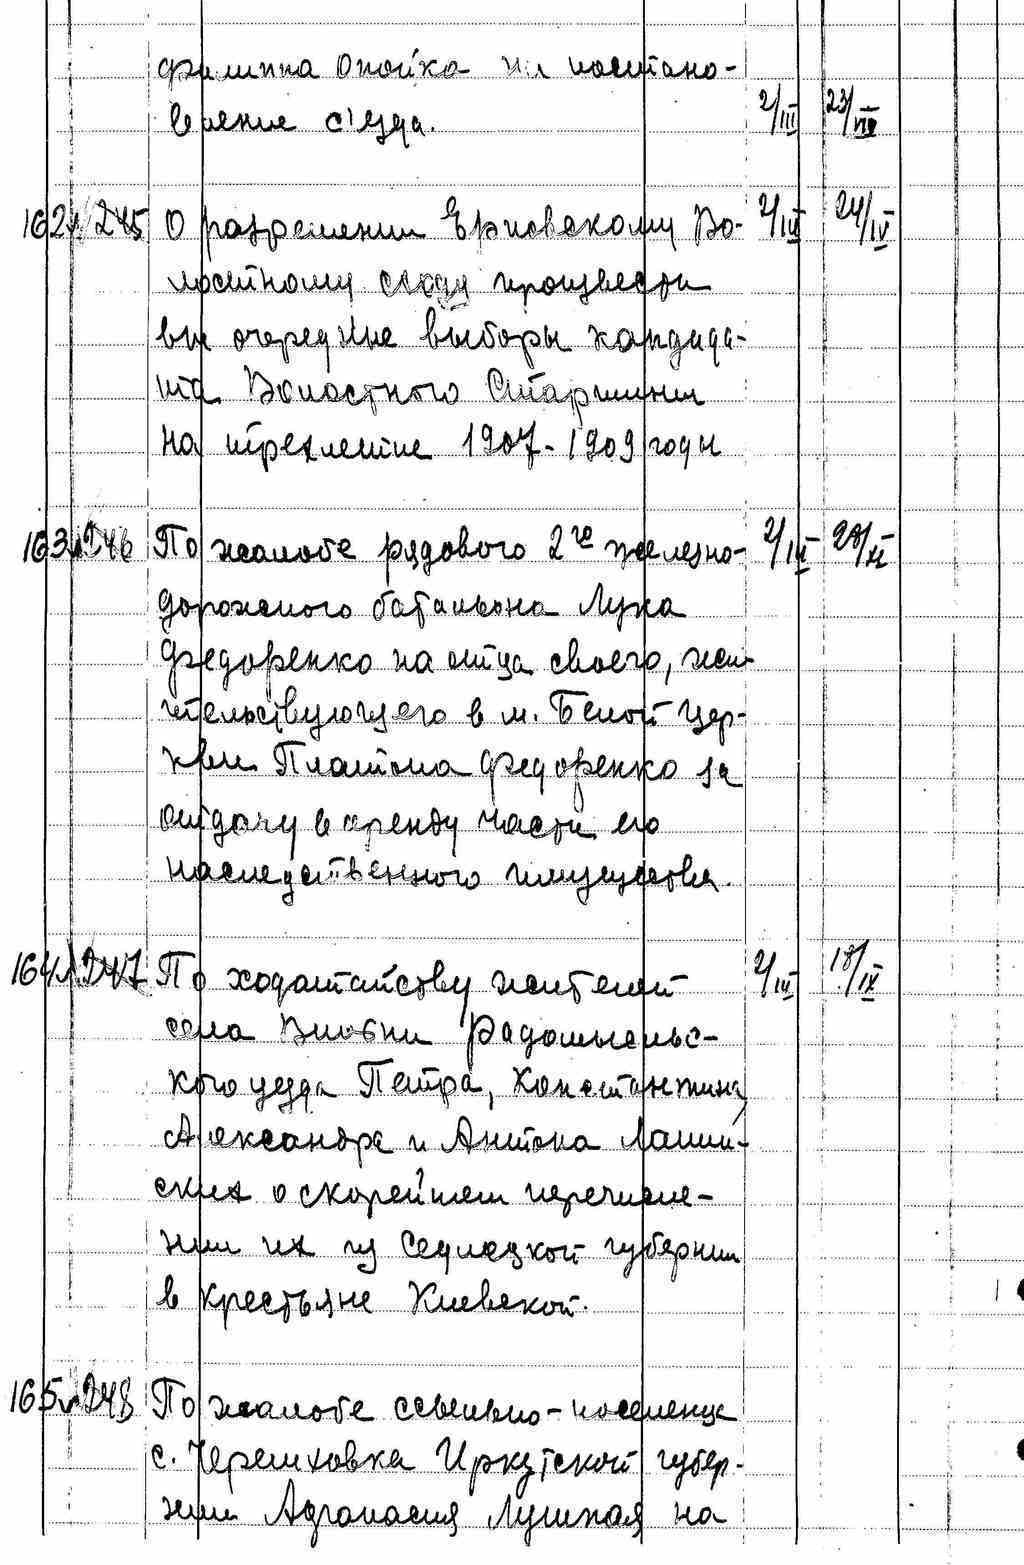 Филиппа Опойка на постано-
вление с'езда. 2/III 23/VII
162 245 О разрешении Ерчовскому Во- 2/III 24/IV
лостному сходу произвести
вне очередные выборы кандида-
та Волостного Старшины
на трехлетие 1907-1909 годы
163 246 По жалобе рядового 2го железно- 2/III 28/XI
дорожного баталиона Лука
Федоренко на отца своего, жи-
тельствующего в м. Белой Цер-
кви Платона Федоренко за
отдачу в аренду части его
наследственного имущества.
164 247 По ходатайству жителей 2/III 18/IX
села Радомысльс-
кого уезда Петра, Константина,
Александра и Антона
ских о скорейшем перечисле-
нии их из Седлецкой губернии
в крестьяне Киевской.
165 248 По жалобе ссыльно-поселенца
с. Черемховка Иркутской губер-
нии Афанасия на